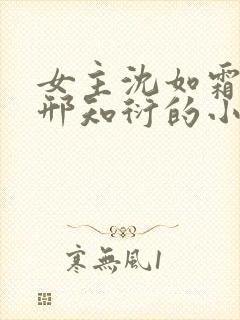 女主沈如霜
邢知衍的小
寒無風1